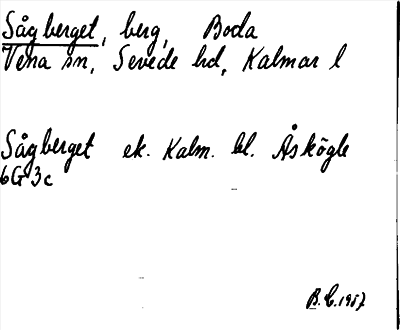 Sågberget, berg, Boda
Vena sn, Sevede hd, Kalmar l
Sågberget ek. Kalm. bl. Åskögle
6G3c
B. 1957